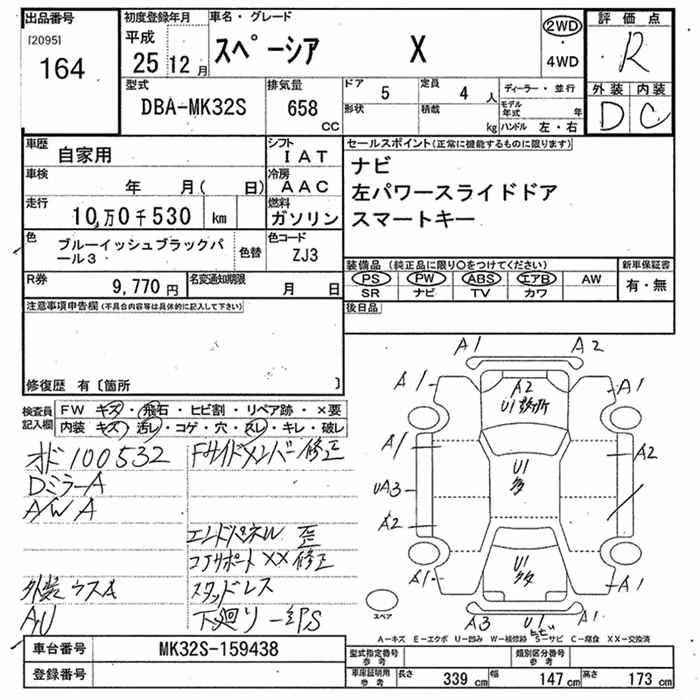 出品番号
[2095]
164
初度登録年月
平成
25年12月
車名・グレード
スペーシア X
2WD
・
4WD
評価点
R
外装 内装
D C
型式
DBA-MK32S
排気量
658
CC
ドア
5
定員
4人
形状
積載
kg
ディーラー・並行
モデル年式 年
ハンドル 左・右
車歴
自家用
シフト
IAT
車検
年 月( 日)
冷房
AAC
走行
10万0千530 km
燃料
ガソリン
色
ブルーイッシュブラックパール3
色替
色コード
ZJ3
R券
9,770円
名変通知期限
月 日
セールスポイント(正常に機能するものに限ります)
ナビ
左パワースライドドア
スマートキー
装備品(純正品に限り○をつけてください)
PS PW ABS エアB AW
SR ナビ TV カワ
新車保証書
有・無
後日品
注意事項申告欄(不具合内容等は具体的に記入して下さい)
修復歴 有〔箇所 〕
検査員記入欄
FW キズ・飛石・ヒビ割・リペア跡・×要
内装 キズ・汚レ・コゲ・穴・スレ・キレ・破レ
オド 100532
Dミラ-A
A/W A
外装ウスA
A,U
Fサイドメンバー修正
エンドパネル 歪
コアサポート XX 修正
スタッドレス
下廻り一部S
A1 A2
A1 A1
A2
U1 多数所
A1 A2
U1
多
UA3
A2
U1
多
A1 A1
A3 U1
スペア
A-キズ E-エクボ U-凹み W-補修跡 S-サビ C-腐食 XX-交換済
車台番号
MK32S-159438
登録番号
型式指定番号
参考
類別区分番号
参考
車庫証明用
参考
長さ 339 cm
幅 147 cm
高さ 173 cm